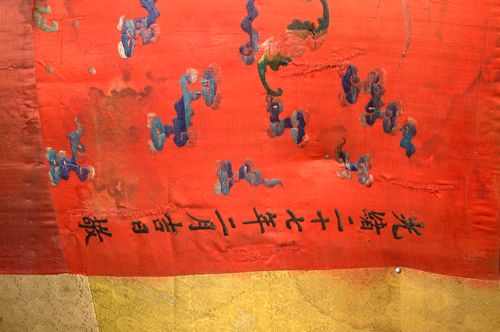 光緒二十七年二月吉日敬